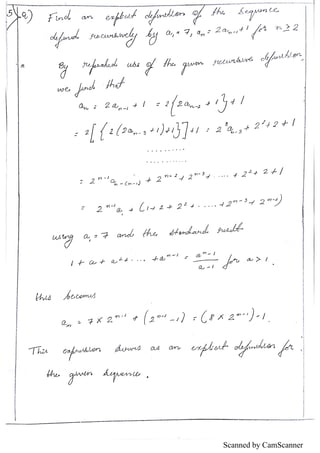 5) a) Find an explicit definition of the sequence
defined recursively by a₁ = 7, aₙ = 2aₙ₋₁ + 1 for n ≥ 2
By repeated use of the given recursive definition
we find that
aₙ = 2aₙ₋₁ + 1 = 2{2aₙ₋₂ + 1} + 1
= 2[{2(2aₙ₋₃ + 1) + 1}] + 1 = 2³aₙ₋₃ + 2² + 2 + 1
. . . . . . . . . .
. . . . . . . . . . .
= 2ⁿ⁻¹ aₙ₋₍ₙ₋₁₎ + 2ⁿ⁻² + 2ⁿ⁻³ + ..... + 2² + 2 + 1
= 2ⁿ⁻¹ a₁ + (1 + 2 + 2² + ...... + 2ⁿ⁻³ + 2ⁿ⁻²)
using a₁ = 7 and the standard result
1 + a + a² + .... + aⁿ⁻¹ = (aⁿ - 1)/(a - 1) for a > 1.
this becomes
aₙ = 7 × 2ⁿ⁻¹ + (2ⁿ⁻¹ - 1) = (8 × 2ⁿ⁻¹) - 1.
This expression as an explicit definition for
the given sequence.
Scanned by CamScanner